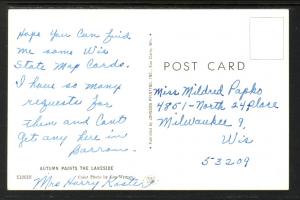 Hope You Can find
me some Wis
State Map Cards.
I have so many
requests for
them and Cant
get any here in
Barron.
AUTUMN PAINTS THE LAKESIDE
Color Photo by
Mrs Harry Koster
POST CARD
Miss Mildred Papko
4851-North 24 Place
Milwaukee 9,
Wis
53209